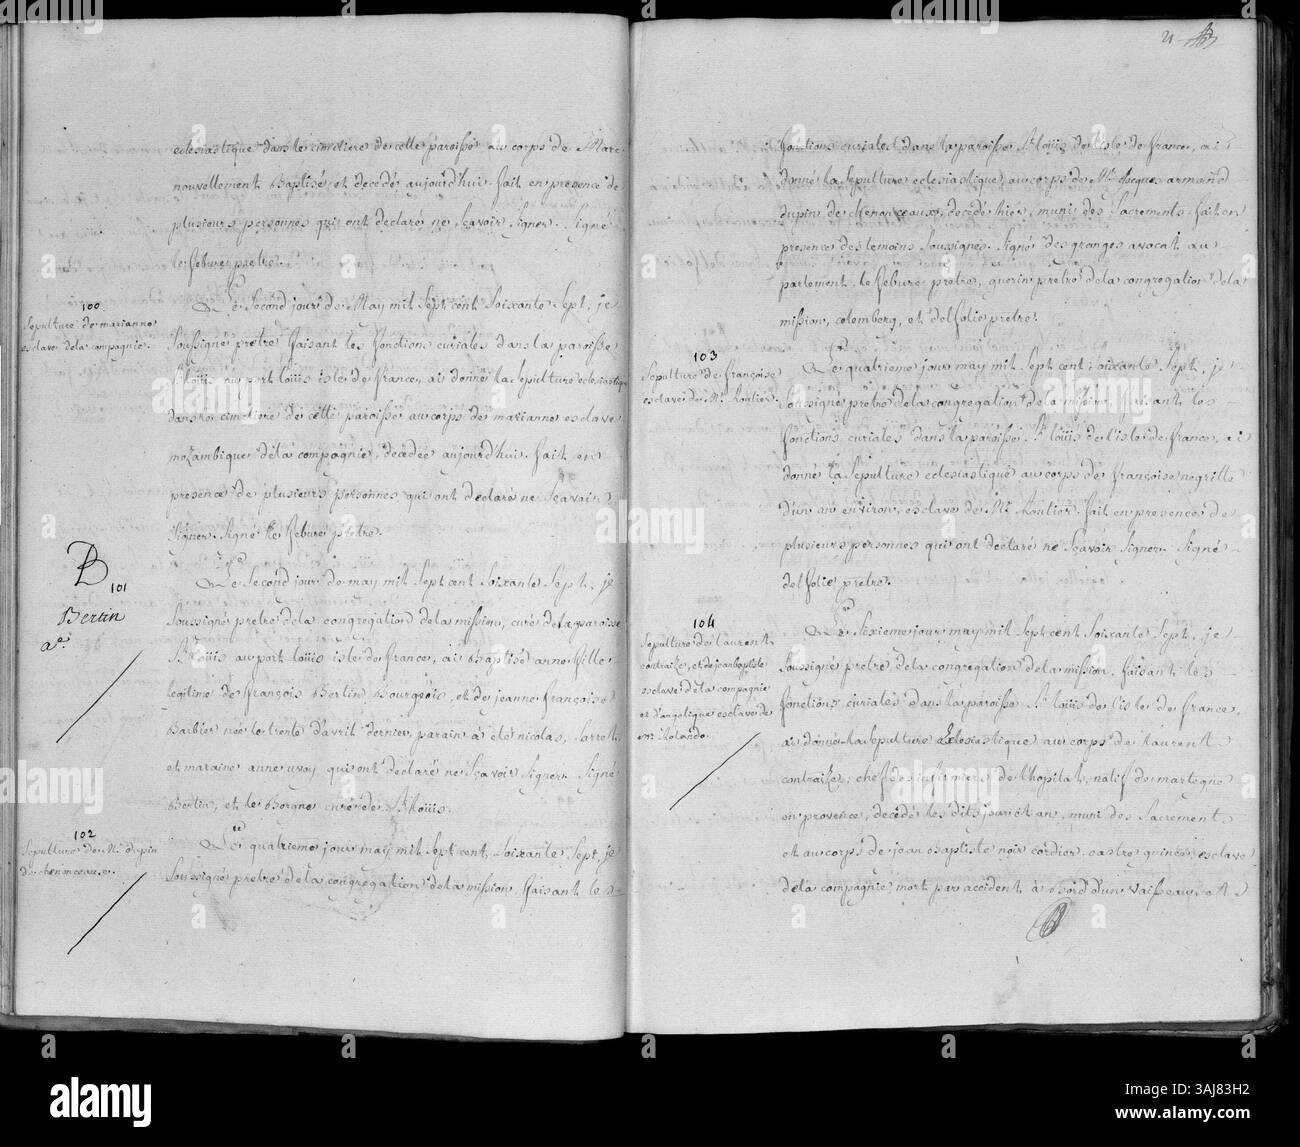 eclesiastique dans le cimetiere de cette paroisse au corps de Marc
nouvellement Baptisé et decedé aujourd'hui fait en presence de
plusieurs personnes qui ont declaré ne sçavoir signer. Signé
le febure pretre.
100
Sepulture de marianne
esclave de la compagnie.
Le second jour de May mil sept cent soixante sept, je
soussigné pretre faisant les fonctions curiales dans la paroisse
St. Loüis au port loüis isle de france, ai donné la sepulture eclesiastique
dans le cimetiere de cette paroisse au corps de marianne esclave
mozambique de la compagnie, decedée aujourd'hui. fait en
presence de plusieurs personnes qui ont declaré ne sçavoir
signer. Signé le febure pretre.
B
101
Bertin
ae.
Le second jour de may mil sept cent soixante sept, je
soussigné pretre de la congregation de la mission, curé de la paroisse
St. Loüis au port loüis isle de france, ai Baptisé anne fille
legitime de françois Bertin Bourgeois, et de jeanne françoise
Barbier née le trente d'avril dernier, parain à été nicolas
et maraine anne qui ont declaré ne sçavoir signer. Signé
Bertin, et le Borgne curé de St. loüis.
102
Sepulture de Mr. dupin
de chenonceaux.
Le quatrieme jour may mil sept cent, soixante sept, je
soussigné pretre de la congregation de la mission faisant les
21
fonctions curiales dans la paroisse St. loüis de l'isle de france, ai
donné la sepulture eclesiastique au corps de Mr. Jacques armand
dupin de chenanceaux, decedé hier, muni des Sacrements. fait en
presence des temoins soussignés. Signé des granges avocat au
parlement, le febure pretre, querin pretre de la congregation de la
mission, colemberg, et delfolie pretre.
103
Sepulture de françoise
esclave de Mr. Routier.
Le quatrieme jour may mil sept cent soixante sept, je
soussigné pretre de la congregation de la mission, faisant les
fonctions curiales dans la paroisse St. loüis de l'isle de france, ai
donné la sepulture eclesiastique au corps de françoise negritte
d'un an environ, esclave de Mr. Routier. fait en presence de
plusieurs personnes qui ont declaré ne sçavoir signer. Signé
delfolie pretre.
104
Sepulture de laurent
et de jean baptiste
esclave de la compagnie
et d'angelique esclave de
mr. Rolando.
Le sixieme jour may mil sept cent soixante sept, je
soussigné pretre de la congregation de la mission faisant les
fonctions curiales dans la paroisse St. loüis de l'isle de france,
ai donné la sepulture Eclesiastique au corps de laurent
chef des infirmiers de l'hopital, natif de martegue
en provence, decédé les dits jour et an, muni des Sacrements
et au corps de jean Baptiste noir cordier esclave
de la compagnie mort par accident à bord d'un vaisseau, et
alamy
Image ID: 3AJ83H2
www.alamy.com